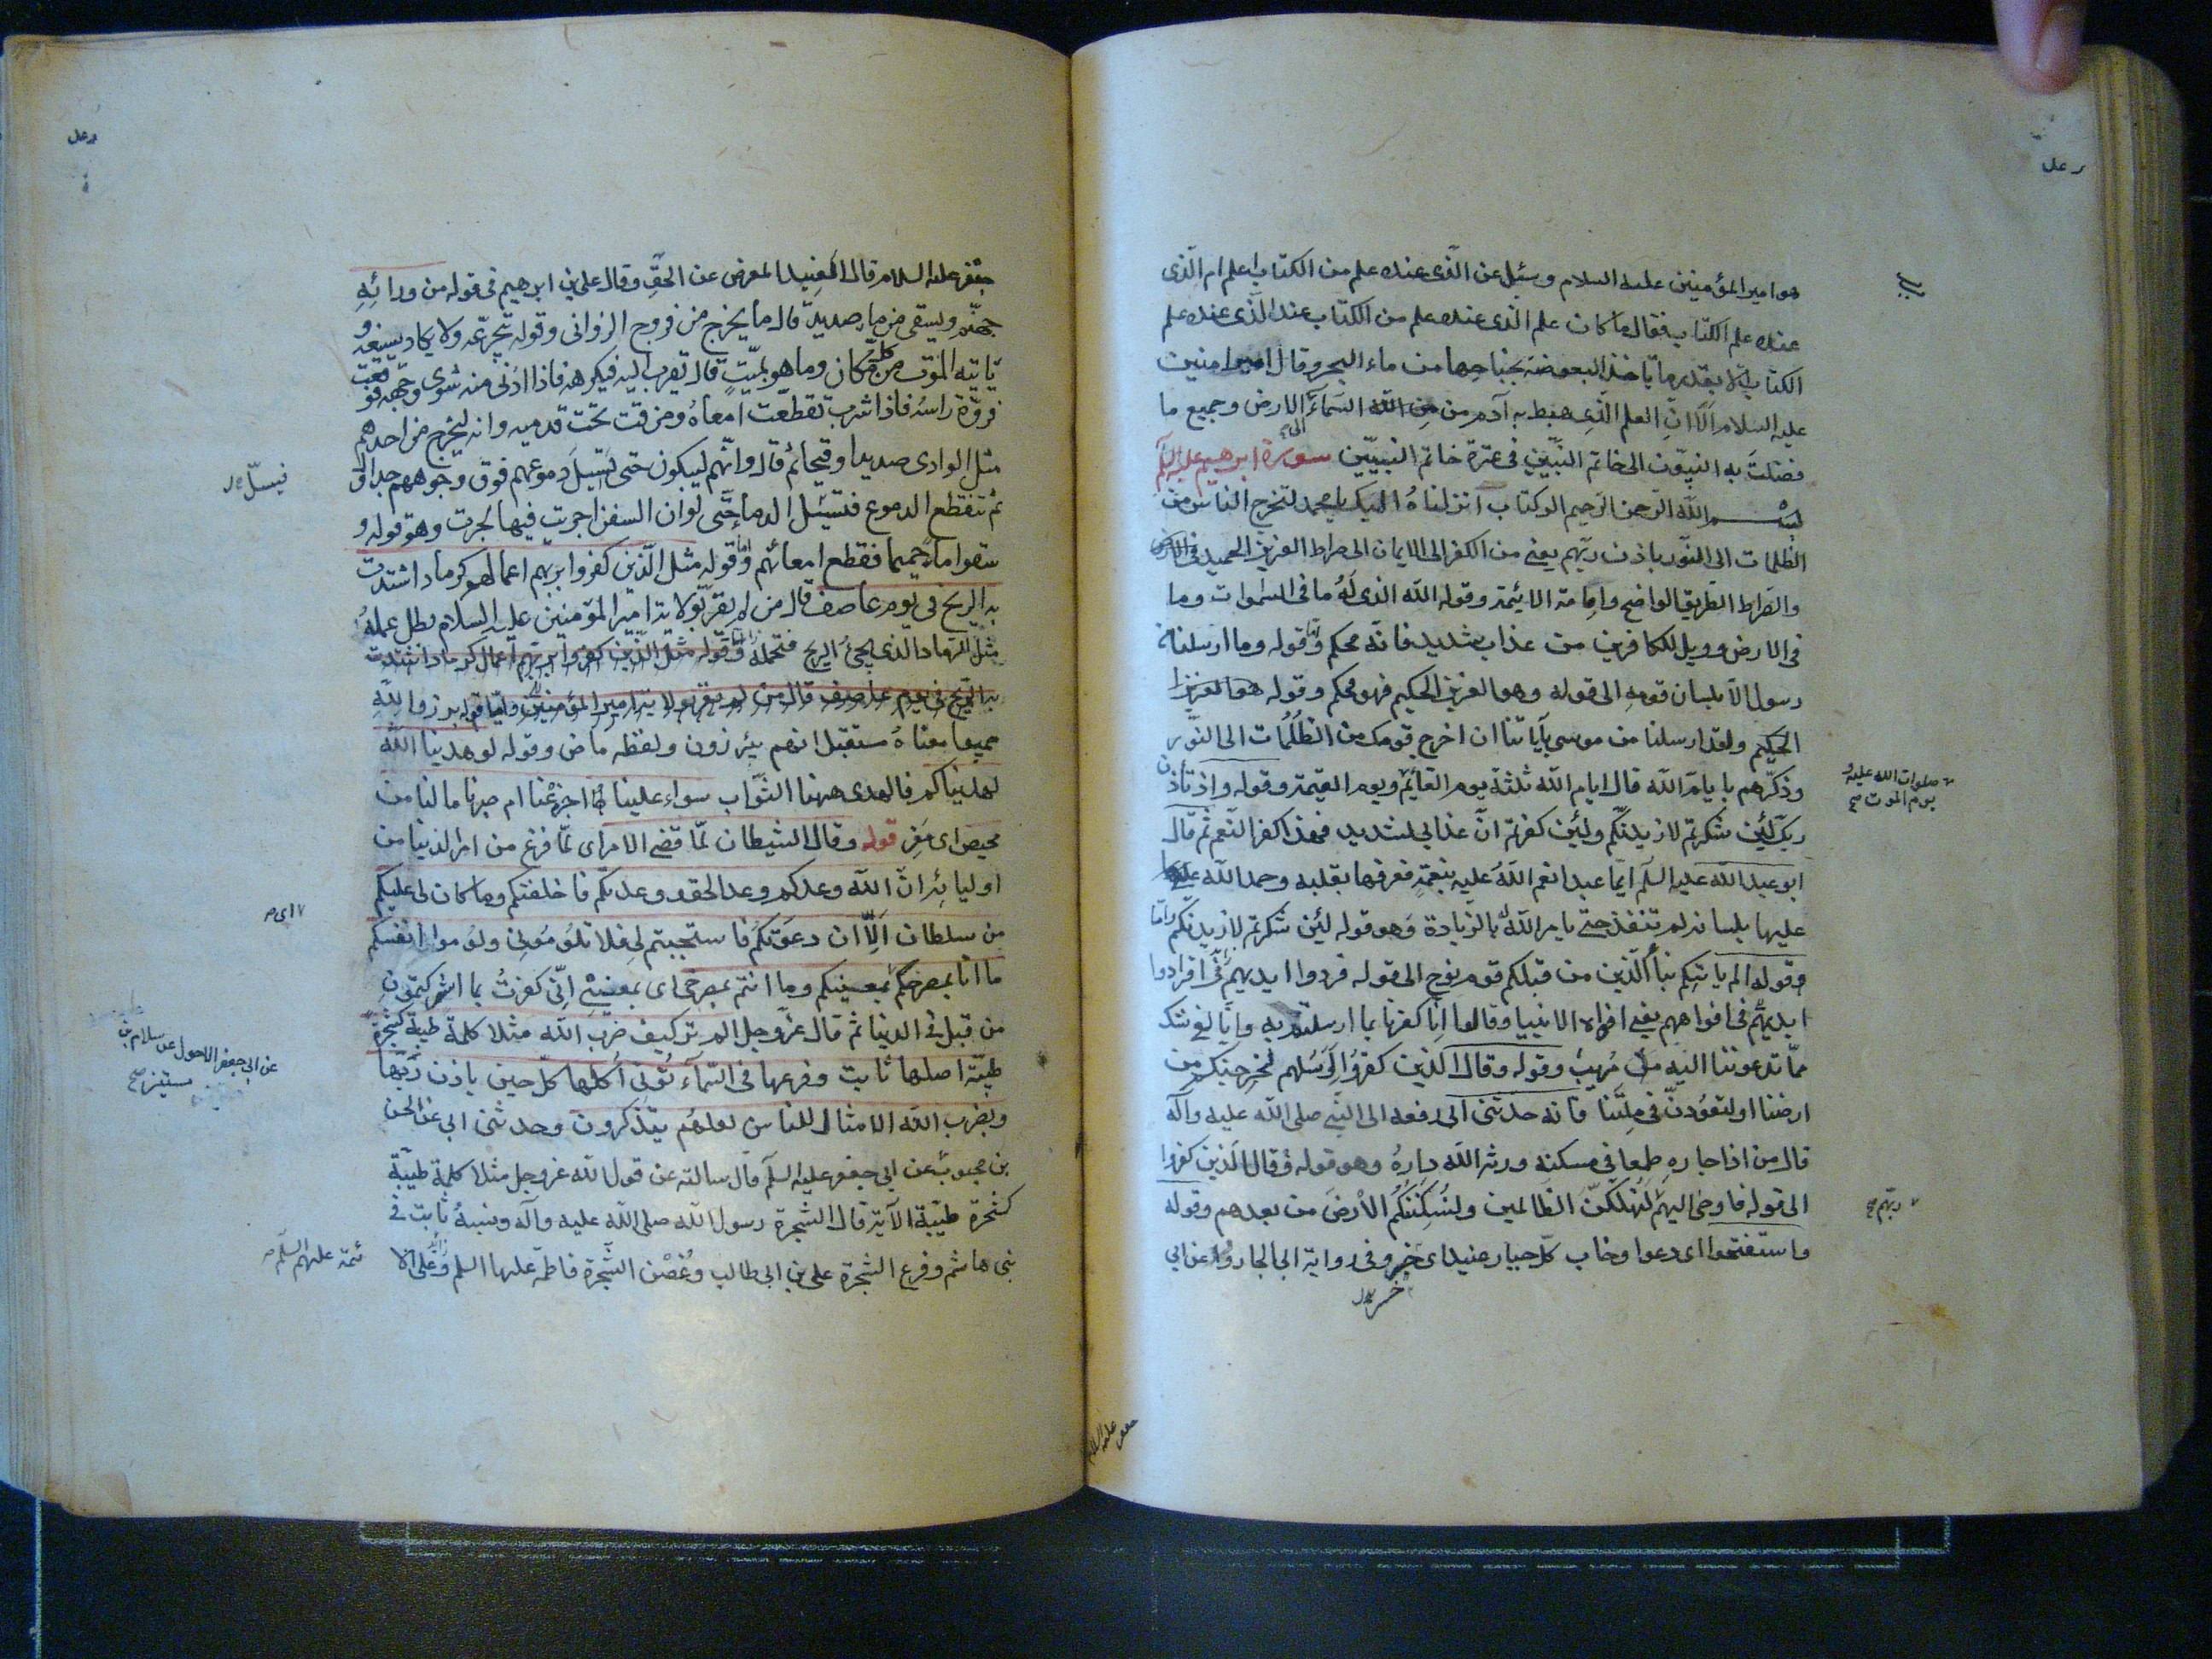 هو امير المؤمنين عليه السلام وسئل عن الذى عنده علم من الكتاب اعلم ام الذى
عنده علم الكتاب فقال ما كان علم الذى عنده علم من الكتاب عند الذى عنده علم
الكتاب الا بقدر ما تاخذ البعوضة بجناحها من ماء البحر وقال امير المؤمنين
عليه السلام الا ان العلم الذى هبط به آدم من السماء الى الارض وجميع ما
فضلت به النبيون الى خاتم النبيين فى عترة خاتم النبيين سورة ابرهيم عليه السلم
بسم الله الرحمن الرحيم الر كتاب انزلناه اليك يا محمد لتخرج الناس من
الظلمات الى النور باذن ربهم يعنى من الكفر الى الايمان الى صراط العزيز الحميد
والصراط الطريق الواضح وامامة الائمة وقوله الله الذى له ما فى السموات وما
فى الارض وويل للكافرين من عذاب شديد فانه محكم واما قوله وما ارسلنا من
رسول الا بلسان قومه الى قوله وهو العزيز الحكيم فهو محكم وقوله هو العزيز
الحكيم ولقد ارسلنا من موسى بآياتنا ان اخرج قومك من الظلمات الى النور
وذكرهم بايام الله قال ايام الله ثلثة يوم القائم ويوم القيمة وقوله واذ تاذن
صلوات الله عليه و
يوم الموت صح
ربك لئن شكرتم لازيدنكم ولئن كفرتم ان عذابى لشديد فهذا كفر النعم ثم قال
ابو عبد الله عليه السلم ايما عبد انعم الله عليه بنعمة فعرفها بقلبه وحمد الله
عليها بلسانه لم تنفذ حتى يامر الله له بالزيادة وهو قوله لئن شكرتم لازيدنكم واما
وقوله الم ياتكم نبأ الذين من قبلكم قوم نوح الى قوله فردوا ايديهم فى افواه
ايديهم فى افواههم يعنى افواه الانبيا وقالوا انا كفرنا بما ارسلتم به وانا لفى شك
مما تدعوننا اليه مريب وقوله وقال الذين كفروا لرسلهم لنخرجنكم من
ارضنا او لتعودن فى ملتنا فانه حدثنى ابى رفعه الى النبى صلى الله عليه وآله
قال من اذا جاره طمعا فى مسكنه ورثه الله داره وهو قوله وقال الذين كفروا
الى قوله فاوحى اليهم لنهلكن الظالمين ولنسكننكم الارض من بعدهم وقوله
ربهم صح
واستفتحوا اى دعوا وخاب كل جبار عنيد اى خسر وفى رواية ابى الجارود عن ابى
جعفر عليه السلام
جعفر عليه السلام قال العنيد المعرض عن الحق وقال على بن ابرهيم فى قوله من ورائه
جهنم ويسقى من ماء صديد قال ما يخرج من فروج الزوانى وقوله يتجرعه ولا يكاد يسيغه و
ياتيه الموت من كل مكان وما هو بميت قال يقرب اليه فيكرهه فاذا ادنى منه شوى وجهه ووقعت
فروة راسه فاذا شرب تقطعت امعاؤه ومزقت تحت قدميه وانه ليخرج من احدهم
مثل الوادى صديدا وقيحا ثم قال وانهم ليبكون حتى تسيل دموعهم فوق وجوههم جداول
فيسيل
ثم تنقطع الدموع فتسيل الدماء حتى لو ان السفن اجريت فيها لجرت وهو قوله و
سقوا ماء حميما فقطع امعائهم واما قوله مثل الذين كفروا بربهم اعمالهم كرماد اشتدت
به الريح فى يوم عاصف قال من لم يقر بولاية امير المؤمنين عليه السلام بطل عمله
مثل الرماد الذى يجئ الريح فتحمله وقوله مثل الذين كفروا بربهم اعمال كرماد اشتدت
به الريح فى يوم عاصف قال من لم يقر بولاية امير المؤمنين واما قوله برزوا لله
جميعا معناه مستقبل انهم يبرزون ولفظه ماض وقوله لو هدينا الله
لهديناكم فالهدى ههنا الثواب سواء علينا اجزعنا ام صبرنا ما لنا من
محيص اى مفر قوله وقال الشيطان لما قضى الامر اى لما فرغ من امر الدنيا من
اوليائه ان الله وعدكم وعد الحق ووعدتكم فاخلفتكم وما كان لى عليكم
من سلطان الا ان دعوتكم فاستجبتم لى فلا تلومونى ولوموا انفسكم
ما انا بمصرخكم بمعينكم وما انتم بمصرخى اى بمعينى انى كفرت بما اشركتمون
من قبل فى الدنيا ثم قال عز وجل الم تر كيف ضرب الله مثلا كلمة طيبة كشجرة
طيبة اصلها ثابت وفرعها فى السماء تؤتى اكلها كل حين باذن ربها
ويضرب الله الامثال للناس لعلهم يتذكرون وحدثنى ابى عن الحسن
عن ابى جعفر الاحول عن سلام بن
مستنير صح
بن محبوب عن ابى جعفر عليه السلم قال سالته عن قول الله عز وجل مثلا كلمة طيبة
كشجرة طيبة الآية قال الشجرة رسول الله صلى الله عليه وآله ونسبه ثابت فى
بنى هاشم وفرع الشجرة على بن ابى طالب وغصن الشجرة فاطمة عليها السلم
ئمة عليهم السلم